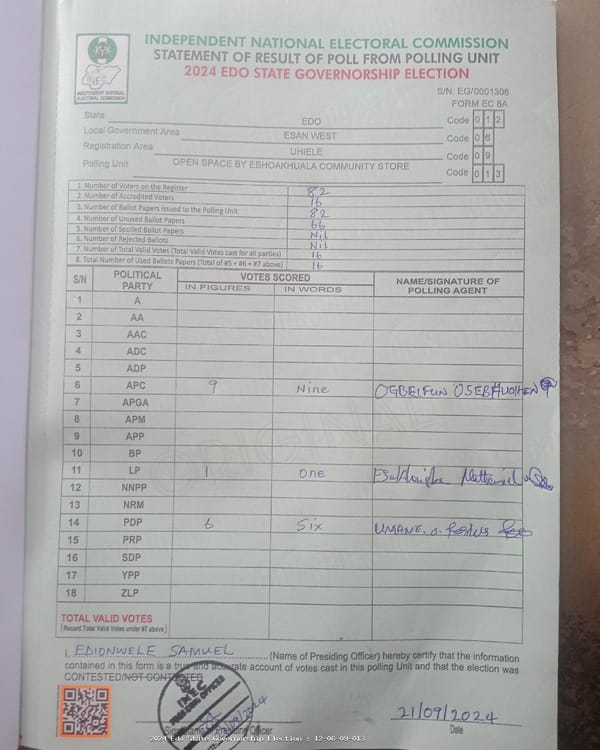 INDEPENDENT NATIONAL ELECTORAL COMMISSION
STATEMENT OF RESULT OF POLL FROM POLLING UNIT
2024 EDO STATE GOVERNORSHIP ELECTION
INEC
INDEPENDENT NATIONAL ELECTORAL COMMISSION
S/N: EG/0001306
FORM EC 8A
State EDO Code 0 1 2
Local Government Area ESAN WEST Code 0 6
Registration Area UHIELE Code 0 9
Polling Unit OPEN SPACE BY ESHOAKHUALA COMMUNITY STORE Code 0 1 3
1. Number of Voters on the Register 82
2. Number of Accredited Voters 16
3. Number of Ballot Papers Issued to the Polling Unit 82
4. Number of Unused Ballot Papers 66
5. Number of Spoiled Ballot Papers Nil
6. Number of Rejected Ballots Nil
7. Number of Total Valid Votes (Total Valid Votes cast for all parties) 16
8. Total Number of Used Ballots Papers (Total of #5 + #6 + #7 above) 16
S/N POLITICAL PARTY VOTES SCORED NAME/SIGNATURE OF POLLING AGENT
IN FIGURES IN WORDS
1 A
2 AA
3 AAC
4 ADC
5 ADP
6 APC 9 Nine
7 APGA
8 APM
9 APP
10 BP
11 LP 1 One
12 NNPP
13 NRM
14 PDP 6 Six
15 PRP
16 SDP
17 YPP
18 ZLP
ORIGINAL
TOTAL VALID VOTES
(Record Total Valid Votes under #7 above)
I, EDIONWELE SAMUEL (Name of Presiding Officer) hereby certify that the information
contained in this form is a true and accurate account of votes cast in this polling Unit and that the election was
CONTESTED/NOT CONTESTED
21/09/2024
Officer Date
2024 Edo State Governorship Election : 12-06-09-013